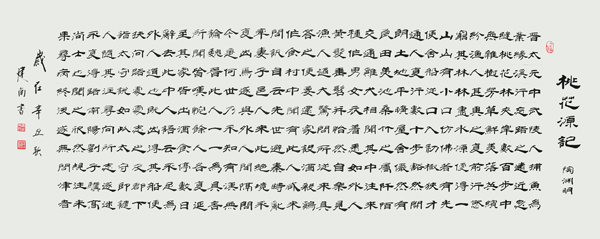 桃花源記
陶淵明
晉太元中武陵人捕魚為
業緣溪行忘路之遠近忽
逢桃花林夾岸數百步中
無雜樹芳草鮮美落英繽
紛漁人甚異之復前行欲
窮其林林盡水源便得一
山山有小口仿佛若有光
便舍船從口入初極狹才
通人復行數十步豁然開
朗土地平曠屋舍儼然有
良田美池桑竹之屬阡陌
交通雞犬相聞其中往來
種作男女衣著悉如外人
黃髮垂髫並怡然自樂見
漁人乃大驚問所從來具
答之便要還家設酒殺雞
作食村中聞有此人咸來
問訊自云先世避秦時亂
率妻子邑人來此絕境不
復出焉遂與外人間隔問
今是何世乃不知有漢無
論魏晉此人一一為具言
所聞皆嘆惋餘人各復延
至其家皆出酒食停數日
辭去此中人語云不足為
外人道也既出得其船便
扶向路處處誌之及郡下
詣太守說如此太守即遣
人隨其往尋向所誌遂迷
不復得路南陽劉子驥高
尚士也聞之欣然規往未
果尋病終後遂無問津者
歲在辛丑秋
南書